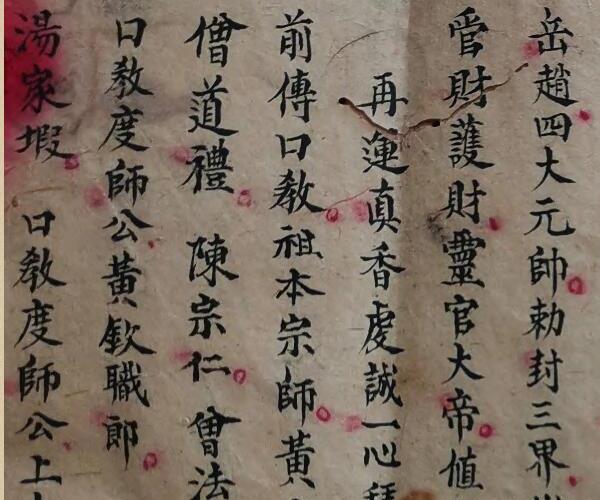 岳趙四大元帥勅封三界
官財護財靈官大帝値
再運真香虔誠一心拜
前傳口教祖本宗師黃
僧道禮 陳宗仁 曾法
口教度師公黃欽職郎
湯家塅 口教度師公上